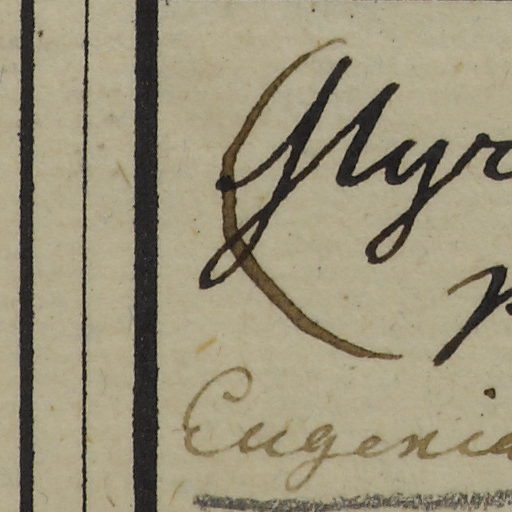 (Myr
p
Eugenia